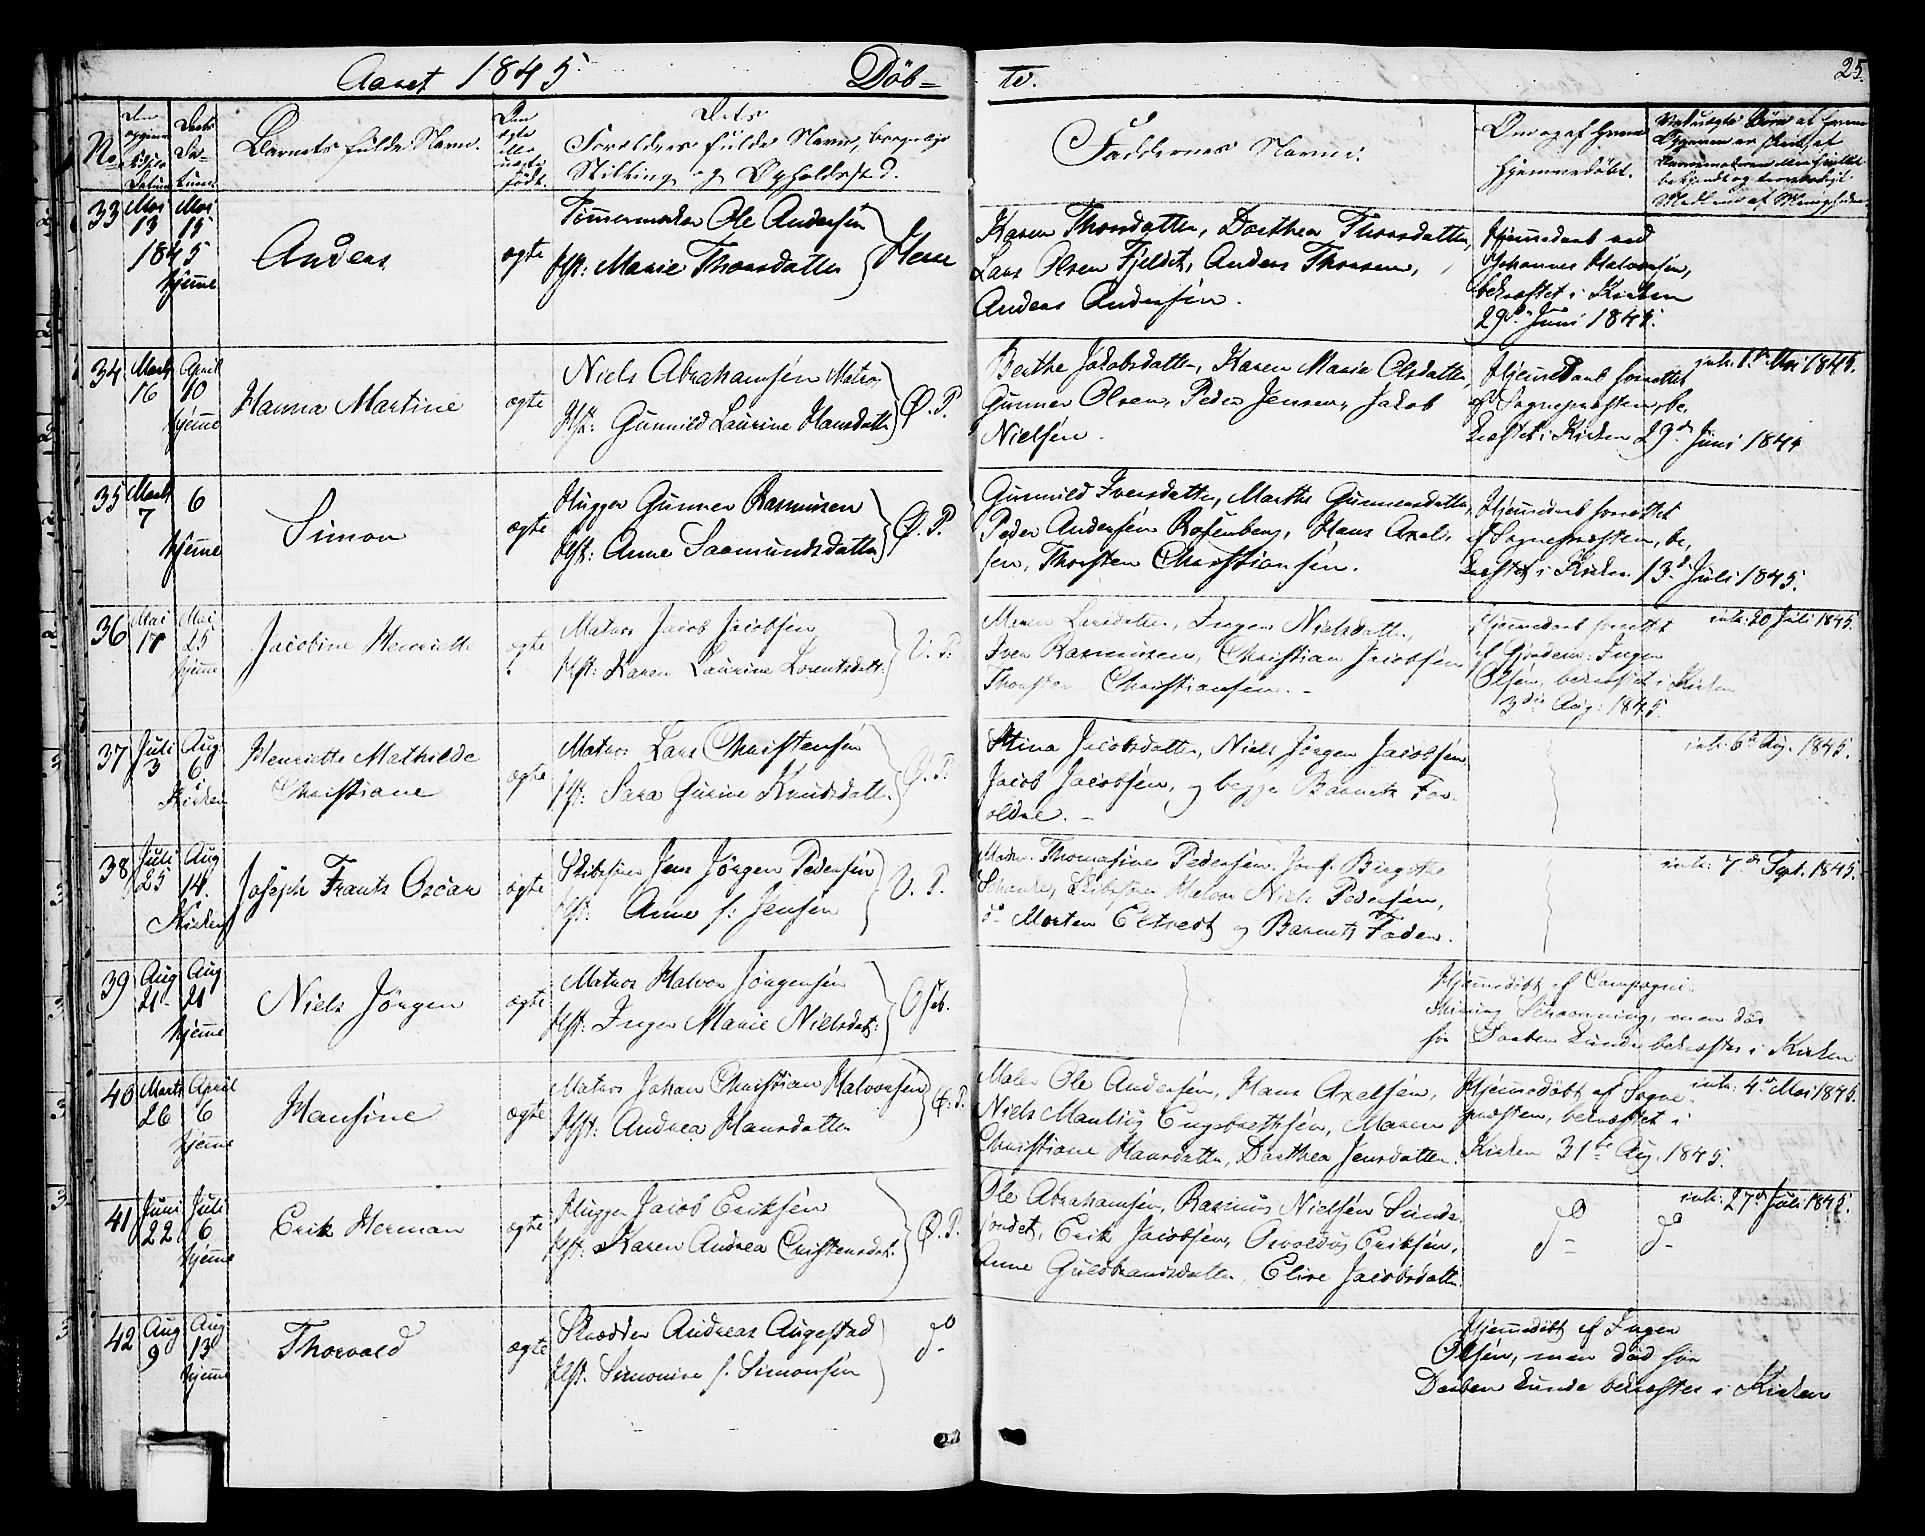 Aaret 1845. Döb-
te.
25.
No.
Barnets fulde Navn.
Dets
Forældres fulde Navn, borgerlige
Stilling og Opholdssted.
Faddernes Navne.
Om og af hvem
hjemmedöbt.
33 Mai 13 Mai 15
1845
hjemme
Anders
ægte
Tömmermand Ole Andersen
Hst: Marie Thorsdatter
Karen Thorsdatter, Dorthea Thorsdatter,
Lars Olsen Fjeldet, Anders Thorsen,
Anders Andersen.
Hjemmedaab ved
Johannes Halvorsen,
bekræftet i Kirken
29de Juni 1845.
34 Marts 16 April 10
hjemme
Hanna Martine
ægte
Niels Abrahamsen Matros
Hst: Gunnild Laurine Hansdatter
Ø. P.
Berthe Jakobsdatter, Karen Marie Olsdatter,
Gunner Olsen, Peder Jensen, Jakob
Nielsen.
Hjemmedaab forrettet
af Sognepræsten, be-
kræftet i Kirken 29de Juni 1845
intr. 1ste Mai 1845.
35 Marts 7 6
hjemme
Simon
ægte
Hugger Gunner Rasmussen
Hst: Anne Saamundsdatter
Ø. P.
Gunnild Iversdatter, Marthe Gunnersdatter,
Peder Andersen Rosenberg, Hans Axel-
sen, Thorsten Christiansen.
Hjemmedaab forrettet
af Sognepræsten, be-
kræftet i Kirken 13de Juli 1845.
36 Mai 17 Mai 25
hjemme
Jacobine Henriette
ægte
Matros Jacob Jacobsen
Hst: Karen Laurine Lorentsdatt:
V. P.
Maren Larsdatter, Inger Nielsdatter,
Iver Rasmussen, Christian Jacobsen
Thorsten Christiansen.
Hjemmedaab forrettet
af Gjordem: Inger
Olsen, bekræftet i Kirken
3die Aug. 1845.
intr. 20 Juli 1845.
37 Juli 3 Aug 6
i Kirken
Henriette Mathilde
Christiane
ægte
Matros Lars Christensen
Hst: Sara Gurine Knudsdatter
Ø. P.
Stina Jacobsdatter, Niels Jörgen Jacobsen,
Jacob Jacobsen, og begge Barnets For-
ældre.
intr. 6te Aug. 1845.
38 Juli 25 Aug 14.
i Kirken
Joseph Frants Oscar
ægte
Skibsförer Jens Jörgen Pedersen
Hst: Anne f: Jensen
V. P.
Madm. Thomasine Pedersen, Jomf. Birgitte
Skibsförer Halvor Niels Pedersen,
do Morten Eltvedt og Barnets Fader.
intr. 7de Sept. 1845.
39 Aug 21 Aug 21
hjemme
Niels Jörgen
ægte
Matros Halvor Jörgensen
Hst: Inger Marie Nielsdat:
Hjemmedöbt af Compagni-
Schaanning, men död
för Daaben kunde bekræftes i Kirken
40 Marts 26 April 6
hjemme
Hansine
ægte
Matros Johan Christian Halvorsen
Hst: Andrea Hansdatter
Ø. P.
Maler Ole Andersen, Hans Axelsen,
Niels Mauling Engebrethsen, Maren
Christiane Hansdatter, Dorthea Jensdatter.
Hjemmedöbt af Sogne-
præsten, bekræftet i
Kirken 31te Aug. 1845.
intr. 4de Mai 1845.
41 Juni 22 Juli 6
hjemme
Erik Herman
ægte
Hugger Jacob Eriksen
Hst: Karen Andrea Cristensdat:
Ø. P.
Ole Abrahamsen, Rasmus Nielsen Sunds-
jordet, Erik Jacobsen, Osvoldus Eriksen,
Anne Guldbrandsdatter, Elise Jacobsdatter.
do
do
intr. 27de Juli 1845.
42 Aug 9 Aug 13
hjemme
Thorvald
ægte
Skrædder Andreas Augestad
Hst. Simonine f. Simonsen
do
Hjemmedöbt af Inger
Olsen, men död för
Daaben kunde bekræftes i Kirken